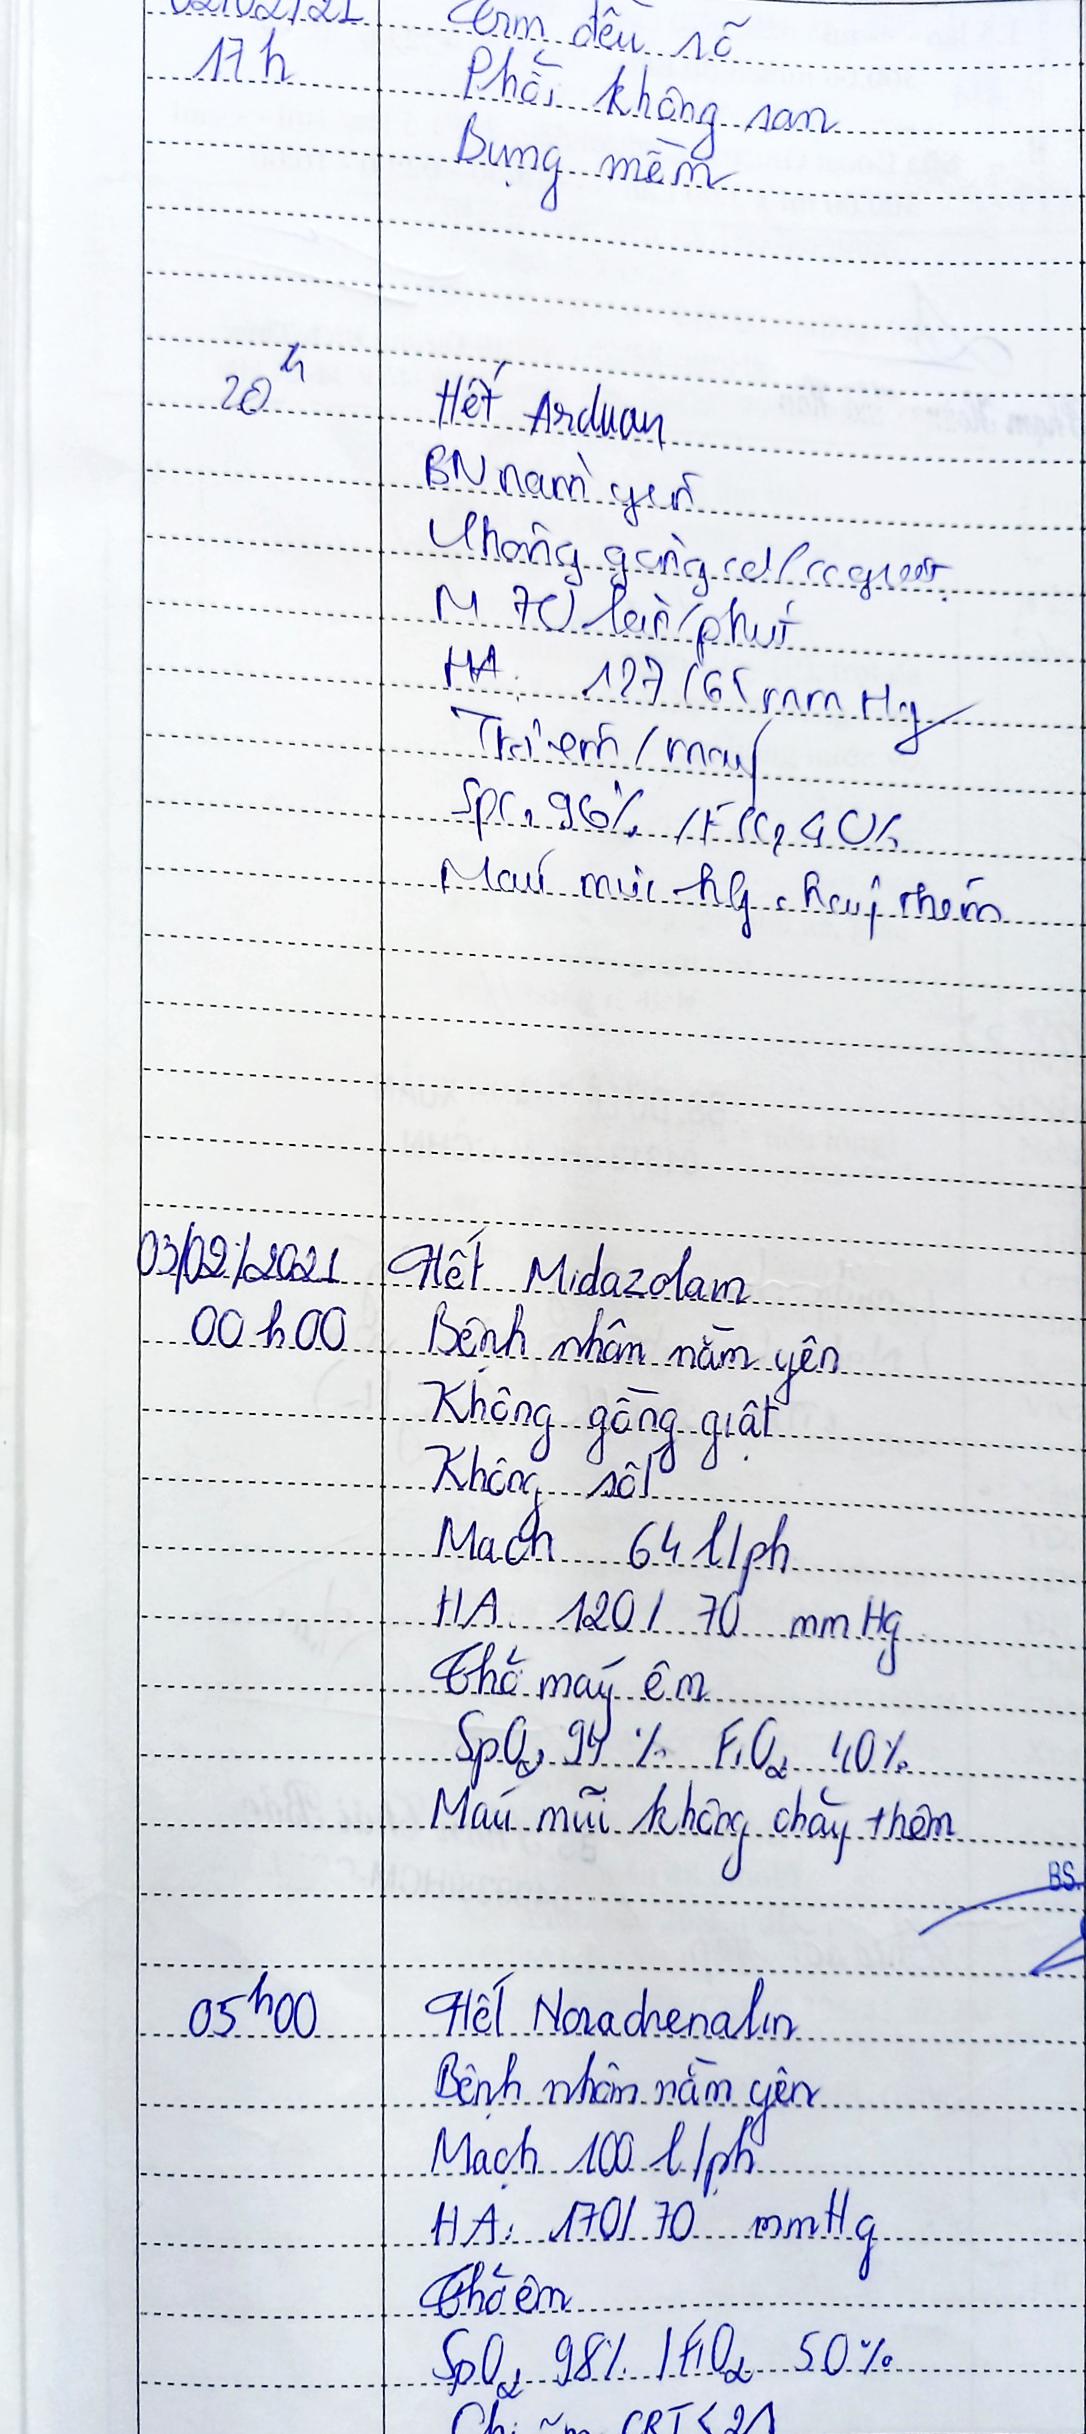 02/02/21 Tim đều rõ
17h Phổi không ran
Bụng mềm
20h Hết Arduan
BN nằm yên
Không gồng
M 70 lần/phút
HA 127/65 mmHg
Thở êm/máy
SpO2 96% /FiO2 40%
Máu mũi kg chảy thêm
03/02/2021 Hết Midazolam
00h00 Bệnh nhân nằm yên
Không gồng giật
Không sốt
Mạch 64 l/ph
HA 120/70 mmHg
Thở máy êm
SpO2 94% FiO2 40%
Máu mũi không chảy thêm
BS.
05h00 Hết Noradrenalin
Bệnh nhân nằm yên
Mạch 100 l/ph
HA: 170/70 mmHg
Thở êm
SpO2 98% / FiO2 50%
CRT < 2s